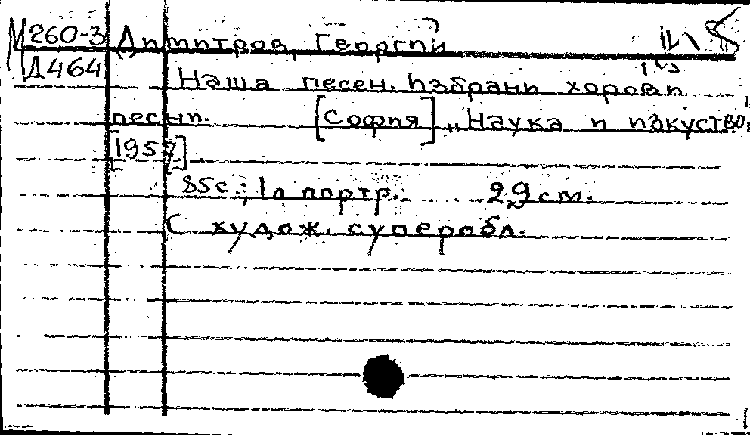 М260-3 Димитров, Георги
Д464 Наша песен. Избрани хорови
песни. [София], "Наука и изкуство,
[1957]
85с.; 1л портр. 29см.
С худож. суперобл.